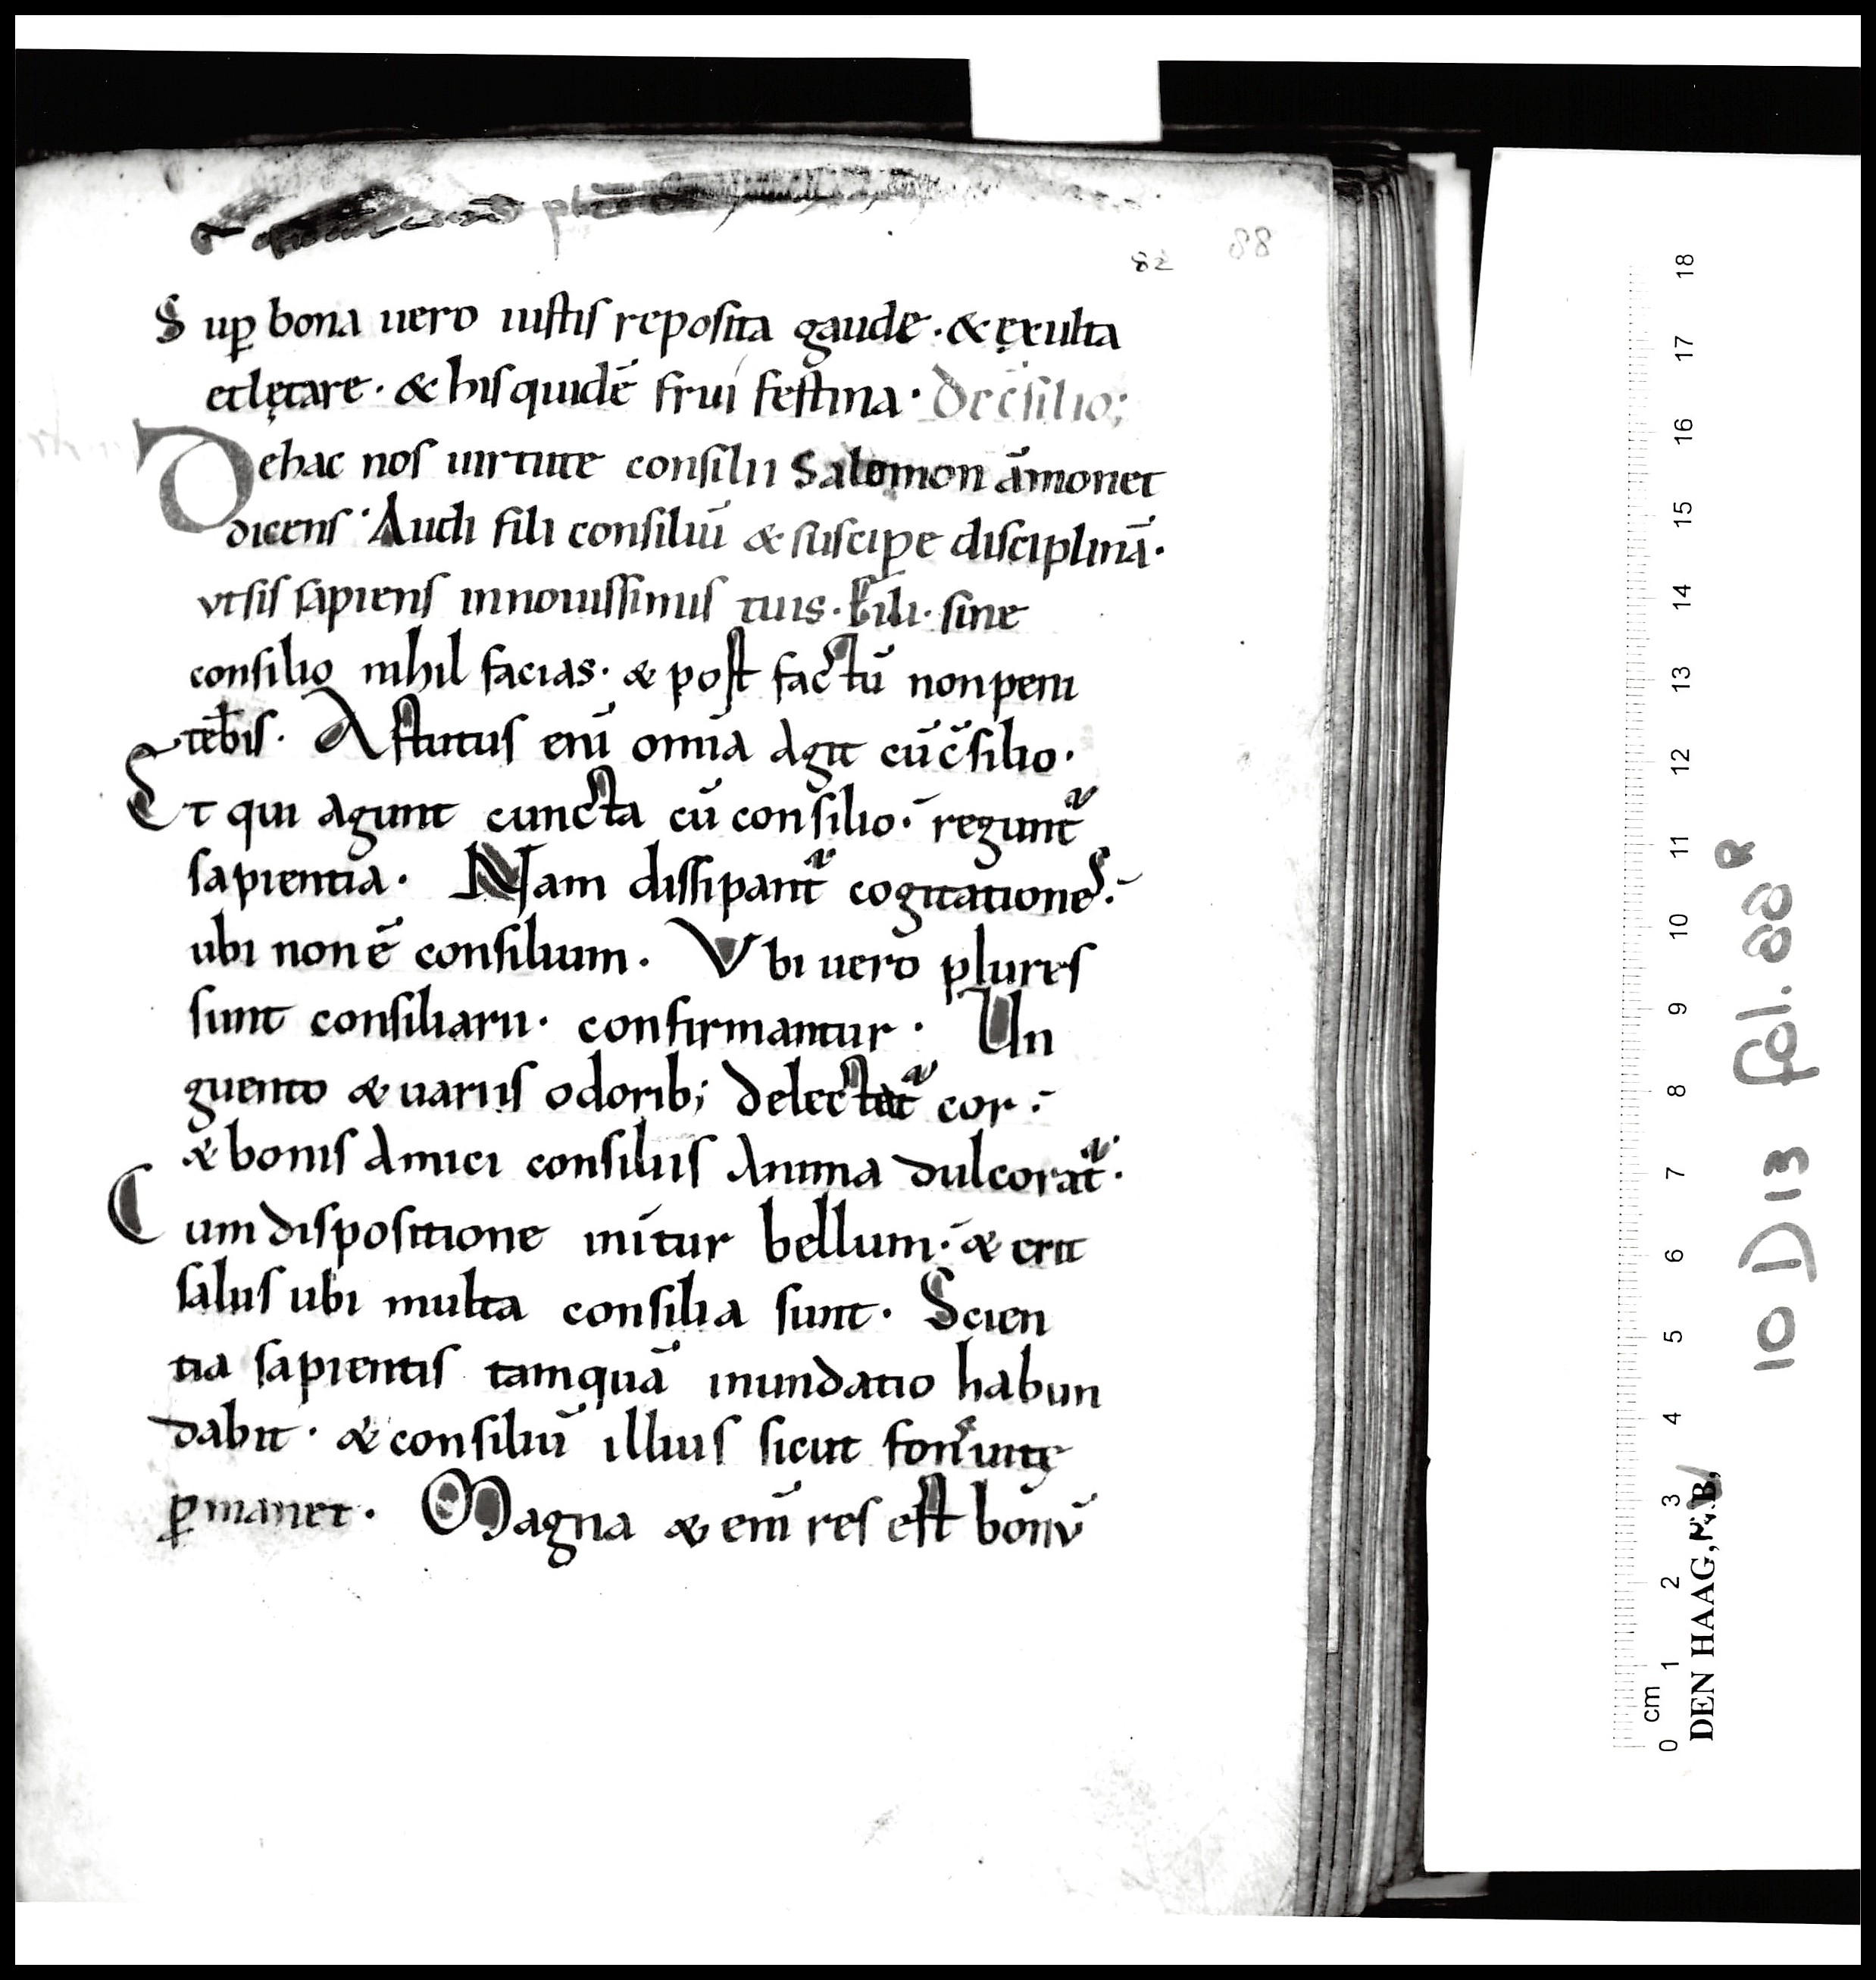 82 88
Sup bona uero iustis reposita gaude · & exulta
et lętare · & his quidē frui festina · De c̄silio;
De hac nos uirtute consilii Salomon āmonet
dicens · Audi fili consiliū & suscipe disciplinā ·
vt sis sapiens in nouissimis tuis · Fili · sine
consilio nihil facias · & post factū non peni
teb̄is · Astutus enī omīa agit cū c̄silio ·
Et qui agunt cuncta cū consilio · regunt᷑
sapientia · Nam dissipant᷑ cogitationes ·
ubi non ē consilium · Vbi uero plures
sunt consiliarii · confirmantur · Un
guento & uariis odorib; delectat᷑ cor ·
& bonis amici consiliis anima dulcorat᷑ ·
Cum dispositione initur bellum · & erit
salus ubi multa consilia sunt · Scien
tia sapientis tamquā inundatio habun
dabit · & consiliū illius sicut fons uitę
ꝑmanet · Magna & enī res est bonū
0 cm 1 2 3 4 5 6 7 8 9 10 11 12 13 14 15 16 17 18
DEN HAAG, K.B.
10 D 13 fol. 88 R